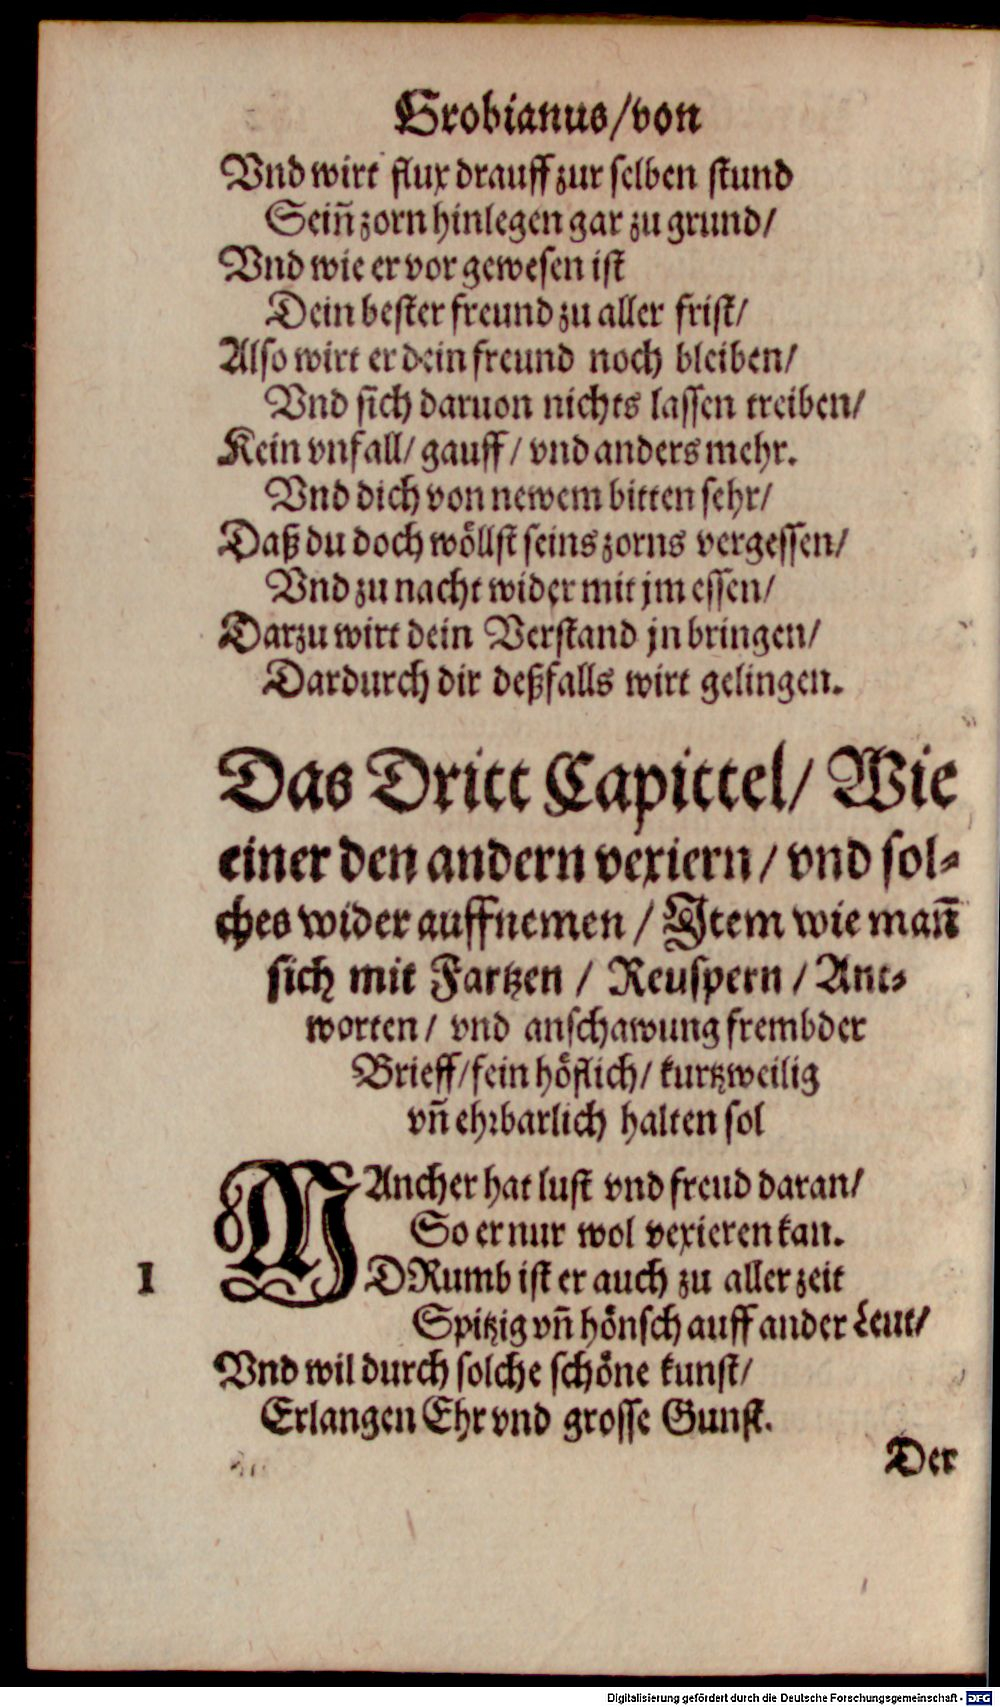 Grobianus/von
Vnd wirt flux drauff zur selben stund
Sein̄ zorn hinlegen gar zu grund/
Vnd wie er vor gewesen ist
Dein bester freund zu aller frist/
Also wirt er dein freund noch bleiben/
Vnd sich daruon nichts lassen treiben/
Kein vnfall/ gauff/ vnd anders mehr.
Vnd dich von newem bitten sehr/
Daß du doch wöllst seins zorns vergessen/
Vnd zu nacht wider mit jm essen/
Darzu wirt dein Verstand jn bringen/
Dardurch dir deßfalls wirt gelingen.
Das Dritt Capittel/ Wie
einer den andern vexiern/ vnd sol⸗
ches wider auffnemen/ Item wie man̄
sich mit Fartzen/ Reuspern/ Ant⸗
worten/ vnd anschawung frembder
Brieff/ fein höflich/ kurtzweilig
vn̄ ehrbarlich halten sol
MAncher hat lust vnd freud daran/
So er nur wol vexieren kan.
1 DRumb ist er auch zu aller zeit
Spitzig vn̄ hönsch auff ander Leut/
Vnd wil durch solche schöne kunst/
Erlangen Ehr vnd grosse Gunst.
Der
Digitalisierung gefördert durch die Deutsche Forschungsgemeinschaft - DFG